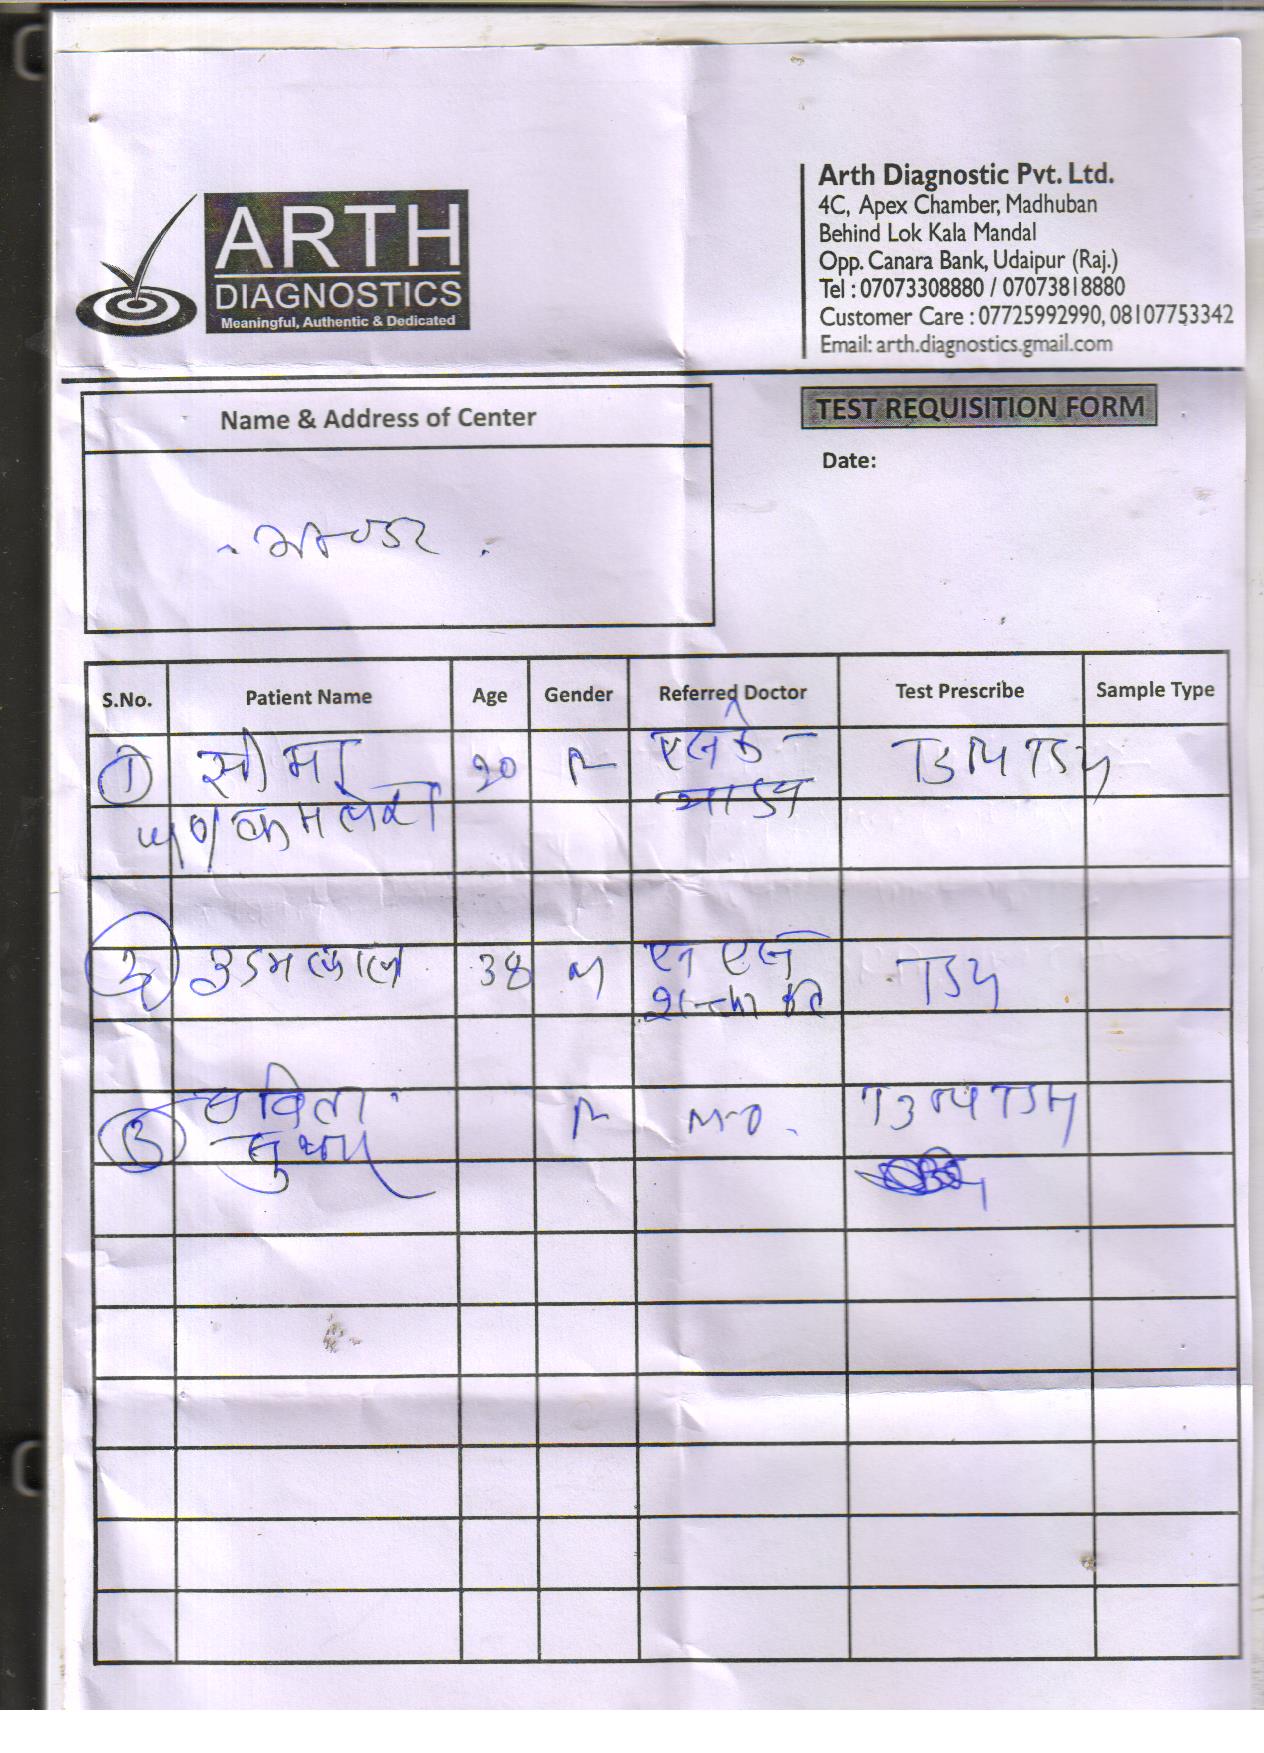 ARTH
DIAGNOSTICS
Meaningful, Authentic & Dedicated
Arth Diagnostic Pvt. Ltd.
4C, Apex Chamber, Madhuban
Behind Lok Kala Mandal
Opp. Canara Bank, Udaipur (Raj.)
Tel : 07073308880 / 07073818880
Customer Care : 07725992990, 08107753342
Email: arth.diagnostics.gmail.com
Name & Address of Center
TEST REQUISITION FORM
Date:
S.No. Patient Name Age Gender Referred Doctor Test Prescribe Sample Type
1 सीमा 20 F एल के T3 T4 TSH
2 38 M एन एल TSH
3 F T3 T4 TSH